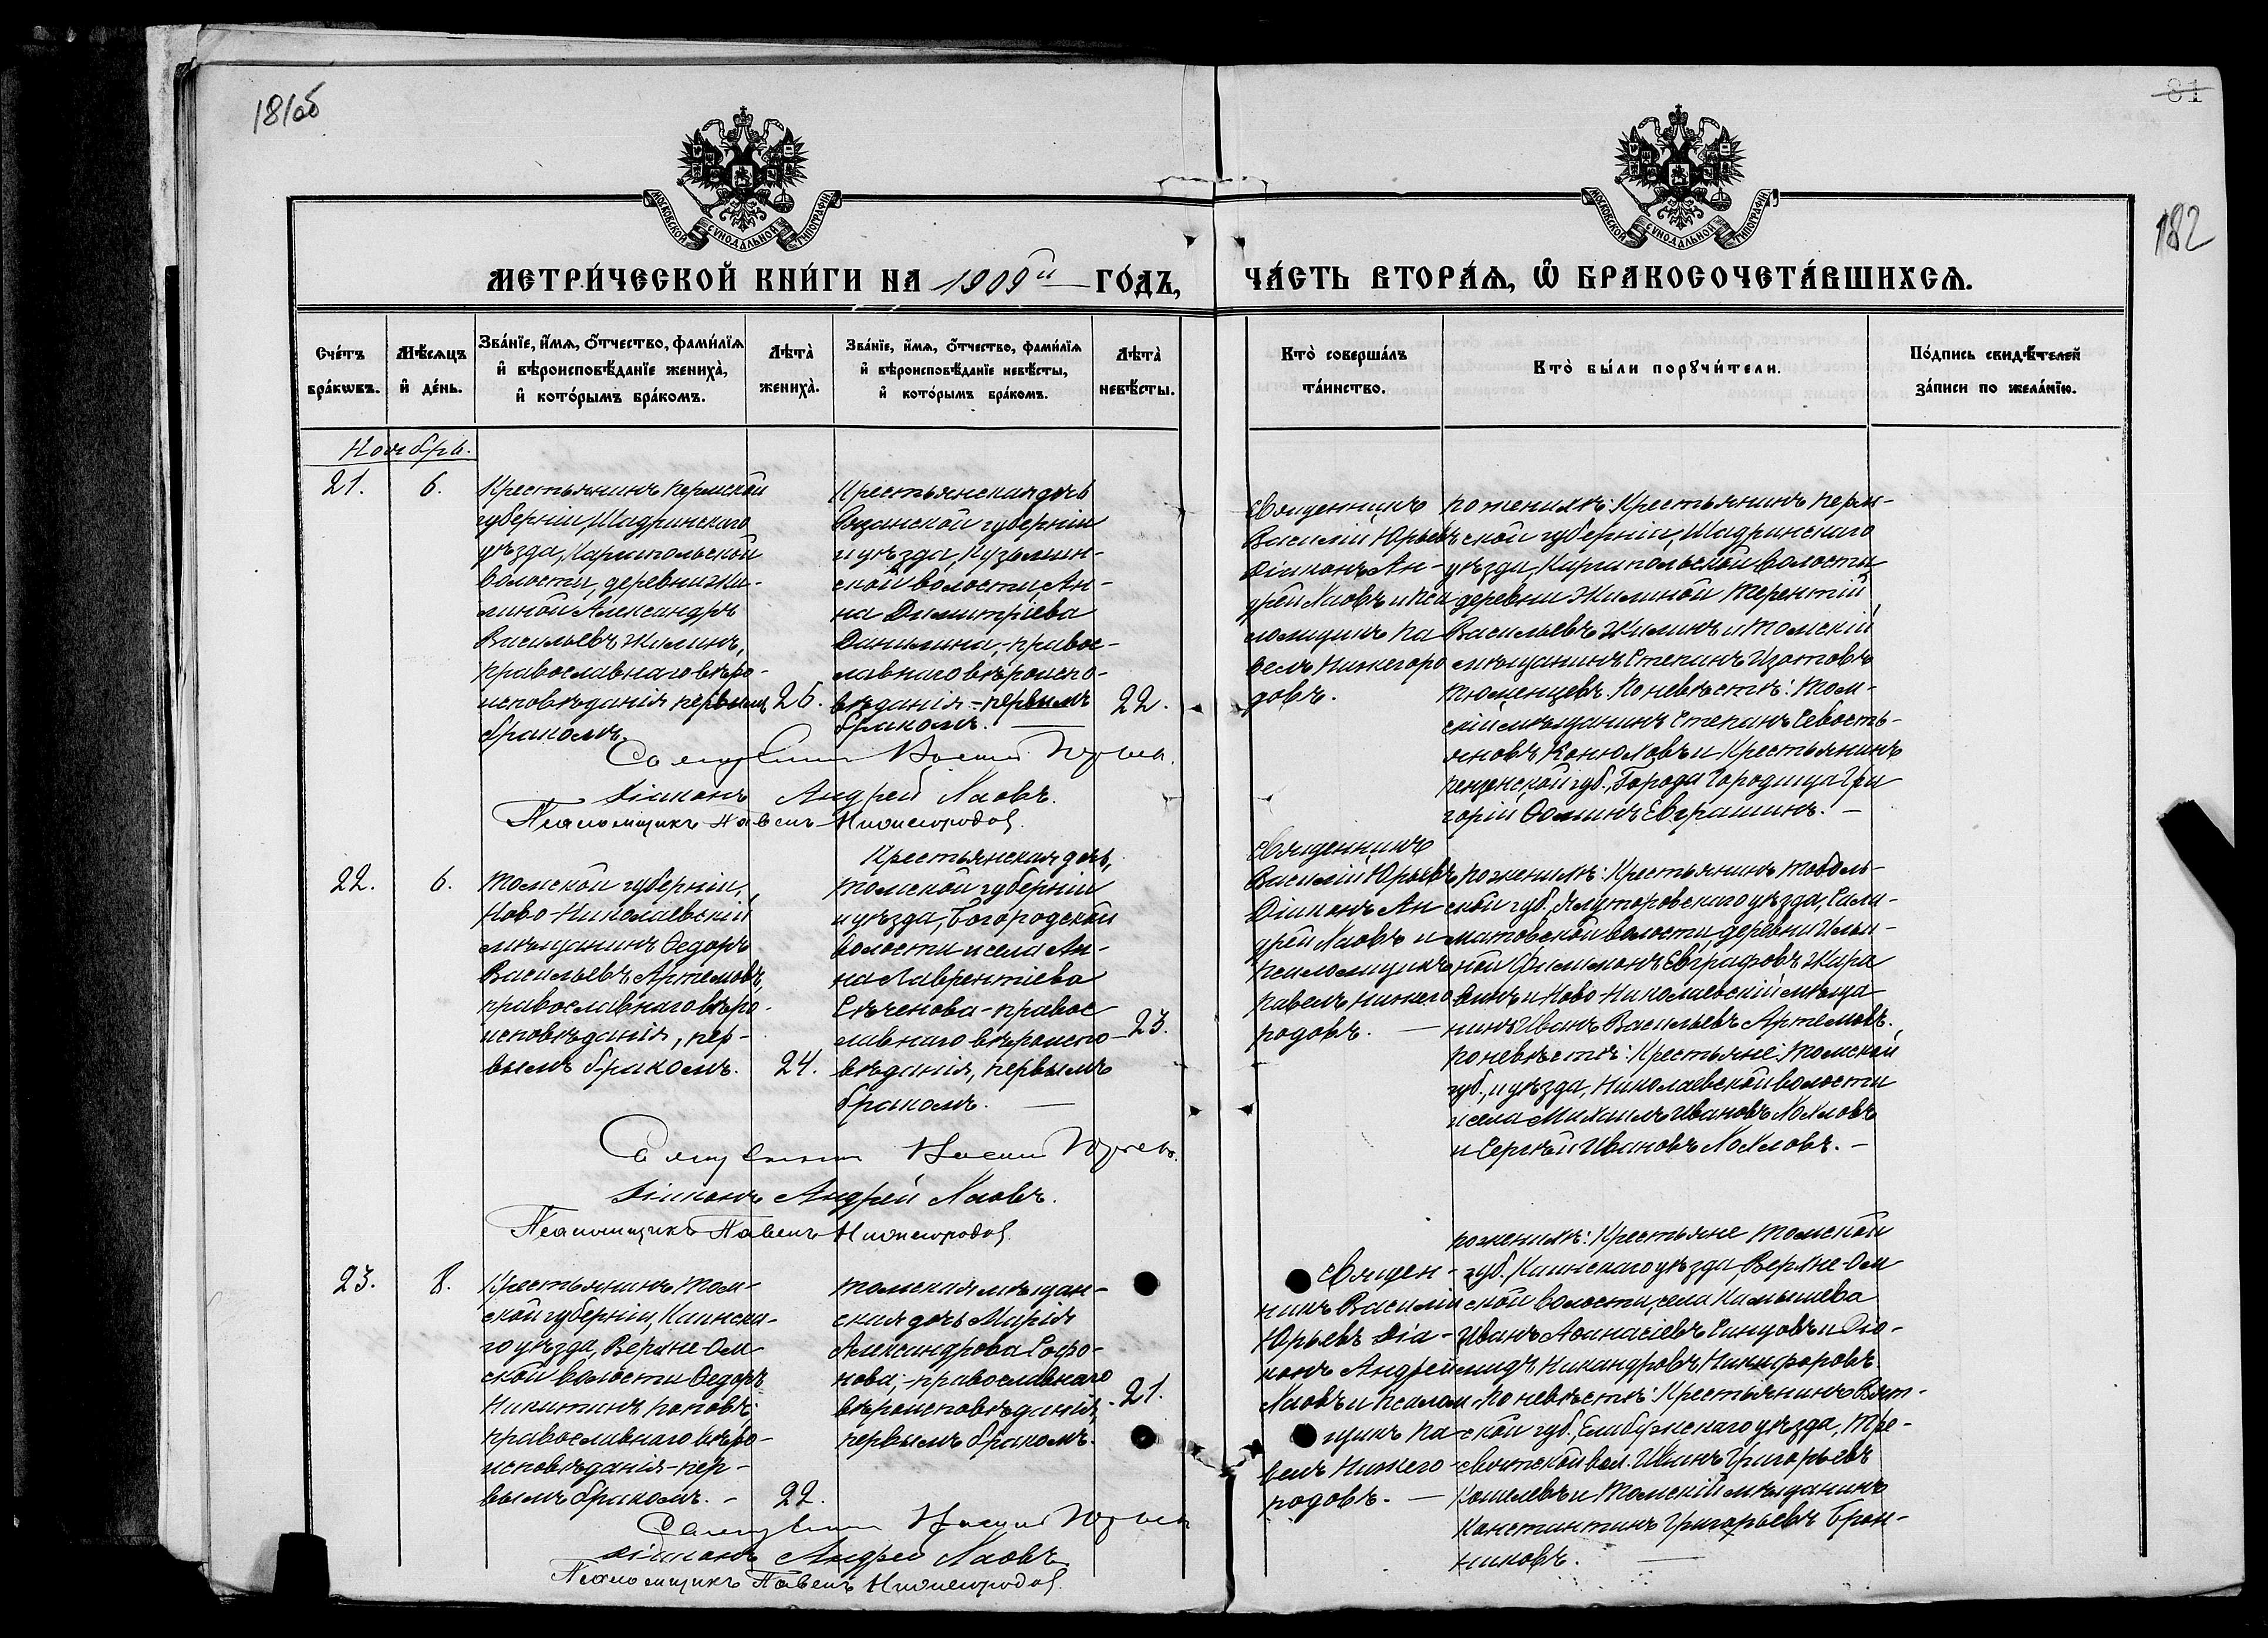 181об
81
182
МОСКОВСКОЙ СѴНОДАЛЬНОЙ ТИПОГРАФІИ
МОСКОВСКОЙ СѴНОДАЛЬНОЙ ТИПОГРАФІИ
МЕТРИ́ЧЕСКОЙ КНИ́ГИ НА 1909й ГО́ДЪ,
ЧА́СТЬ ВТОРА́Ѧ, Ѡ҆ БРАКОСОЧЕТА́ВШИХСѦ.
Сче́тъ бра́кѡвъ.
Мѣ́сѧцъ и҆ де́нь.
Зва́нїе, и҆́мѧ, ѻ҆́тчество, фами́лїѧ
и҆ вѣроисповѣ́данїе жениха̀,
и҆ кото́рымъ бра́комъ.
Лѣта̀ жениха̀.
Зва́нїе, и҆́мѧ, ѻ҆́тчество, фами́лїѧ
и҆ вѣроисповѣ́данїе невѣ́сты,
и҆ кото́рымъ бра́комъ.
Лѣта̀ невѣ́сты.
Кто̀ соверша́лъ
та́инство.
Кто̀ бы́ли порꙋчи́тели.
По́дпись свидѣ́телей
за́писи по жела́нїю.
Ноябрь.
21.
6.
Крестьянинъ Пермской
губерніи, Шадринскаго
уѣзда, Каргапольской
волости, деревни Жи-
линой Александръ
Васильевъ Жилинъ,
православнаго вѣро-
исповѣданія первымъ
бракомъ.
26.
Крестьянская дочь
Казанской губерніи
и уѣзда, Кузьмин-
ской волости, Ан-
на Димитріева
Данилина, правос-
лавнаго вѣроиспо-
вѣданія - первымъ
бракомъ.
22.
Священникъ
Василій Юрьевъ
Діаконъ Ан-
дрей Хаовъ и Пса
ломщикъ Па-
велъ Нижегоро
довъ.
По женихѣ: Крестьянинъ Перм-
ской губерніи, Шадринскаго
уѣзда, Каргапольской волости
деревни Жилиной Терентій
Васильевъ Жилинъ и Томскій
мѣщанинъ Степанъ Изотовъ
Тюменцевъ. По невѣстѣ: Том-
скій мѣщанинъ Степанъ Севость-
яновъ Конюховъ и Крестьянинъ
Пензенской губ. Города Городища Гри
горій Ѳоминъ Евграшинъ. -
Священникъ Василій Юрьевъ.
Діаконъ Андрей Хаовъ.
Псаломщикъ Павелъ Нижегородов.
22.
6.
Томской губерніи,
Ново-Николаевскій
мѣщанинъ Ѳедоръ
Васильевъ Артемовъ,
православнаго вѣро-
исповѣданія, пер-
вымъ бракомъ.
24.
Крестьянская дочь,
Томской губерніи
и уѣзда, Богородской
волости и села Ан-
на Лаврентіева
Сѣченова - правос
лавнаго вѣроиспо-
вѣданія, первымъ
бракомъ.
23.
Священникъ
Василій Юрьевъ
Діаконъ Ан
дрей Хаовъ и
псаломщикъ
Павелъ Нижего
родовъ.
По женихѣ: Крестьянинъ Тоболь-
ской губ., Ялуторовскаго уѣзда, Сала-
матовской волости деревни Ильи-
ной Филимонъ Евграфовъ Жара
винъ и Ново-Николаевскій мѣща
нинъ Иванъ Васильевъ Артемовъ.
По невѣстѣ: Крестьяне: Томской
губ., и уѣзда, Николаевской волости
и села Михаилъ Ивановъ Хохловъ
и Сергѣй Ивановъ Хохловъ. -
Священникъ Василій Юрьевъ.
Діаконъ Андрей Хаовъ.
Псаломщикъ Павелъ Нижегородов.
23.
8.
Крестьянинъ Том-
ской губерніи, Каинска-
го уѣзда, Верхне-Ом-
ской волости Ѳедоръ
Никитинъ Поповъ;
православнаго вѣро-
исповѣданія - пер-
вымъ бракомъ. -
22.
Томская мѣщан-
ская дочь Марія
Александрова Софо-
нова, - православнаго
вѣроисповѣданія,
первымъ бракомъ.
21.
Священ-
никъ Василій
Юрьевъ Діа-
конъ Андрей
Хаовъ и псалом
щикъ Па-
велъ Нижего-
родовъ. -
По женихѣ: Крестьяне Томской
губ. Каинскаго уѣзда, Верхне-Ом
ской волости, села Камышева
Иванъ Аѳанасіевъ Синцовъ и Діо-
мидъ Никандровъ Никифоровъ.
По невѣстѣ: Крестьянинъ Вят-
ской губ., Елабужскаго уѣзда, Тре-
святской вол. Иванъ Григорьевъ
Кошелевъ и Томскій мѣщанинъ
Константинъ Григорьевъ Брон-
никовъ.
Священникъ Василій Юрьевъ
Діаконъ Андрей Хаовъ
Псаломщикъ Павелъ Нижегородов.